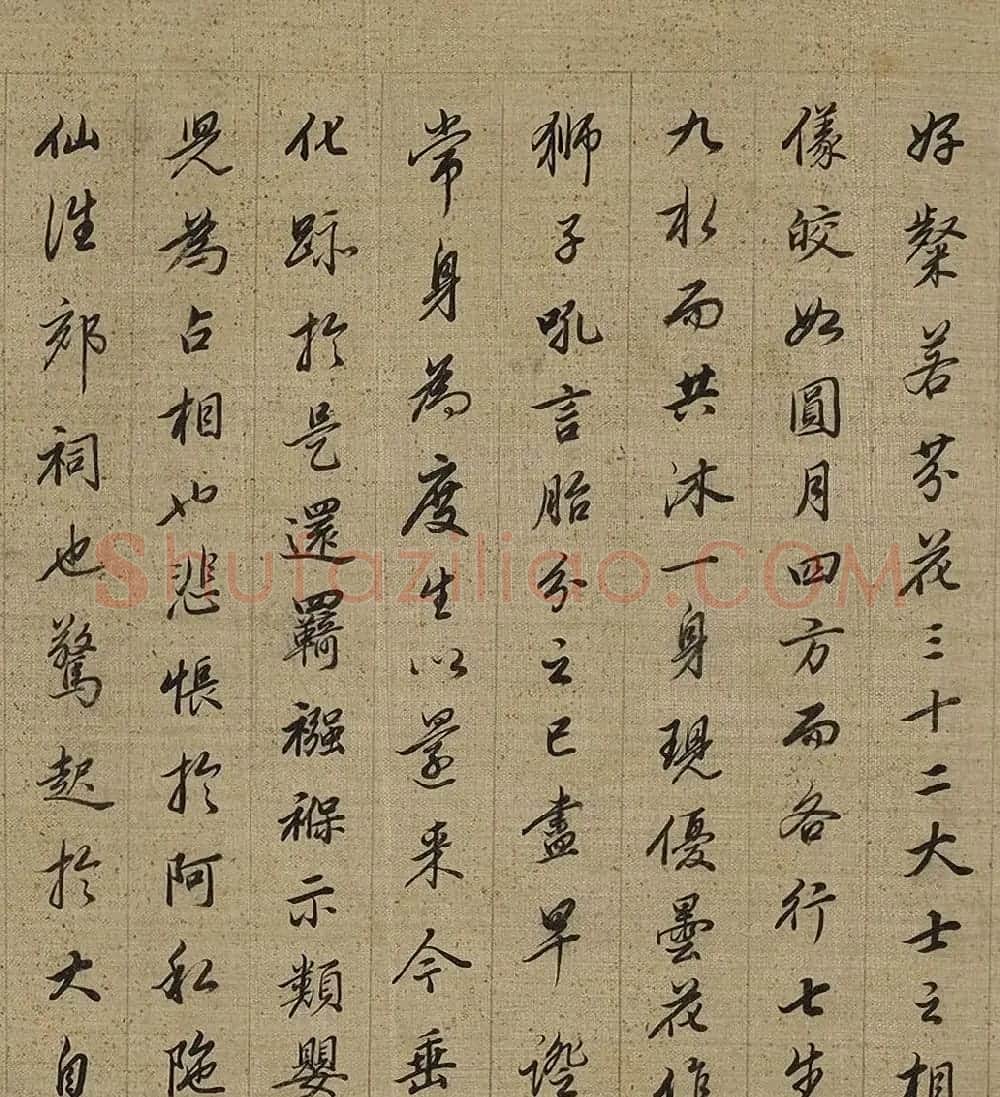 好粲若芬花三十二大士之相
儀皎如圓月四方而各行七步
九水而共沐一身現優曇花作
獅子吼言胎分之已盡早證
常身為度生以還来今垂
化跡於是還羈襁褓示類嬰
兒為占相也悲悵於阿私陁
仙往郊祠也驚起於大自
Shufaziliao.COM